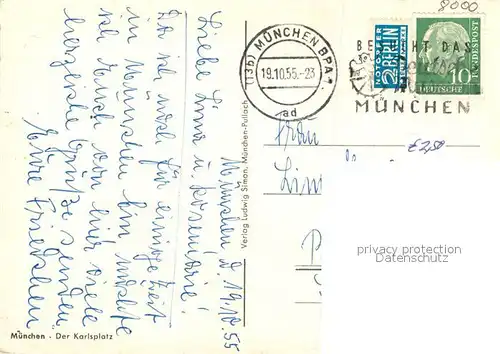 8000
(13b) MÜNCHEN BPA 1
19.10.55.-23
ad
NOTOPFER
2 BERLIN
STEUERMARKE
10
DEUTSCHE
BUNDESPOST
DAS
MÜNCHEN
€2,50
München, d. 19.10.55
Liebe Lina u. Rosemarie!
Da ich noch für einige Zeit
in München bin möchte
ich Euch von hier viele
herzliche Grüße senden.
Eure Friedchen
Verlag Ludwig Simon, München-Pullach
Frau
privacy protection
DATENSCHUTZ
München - Der Karlsplatz